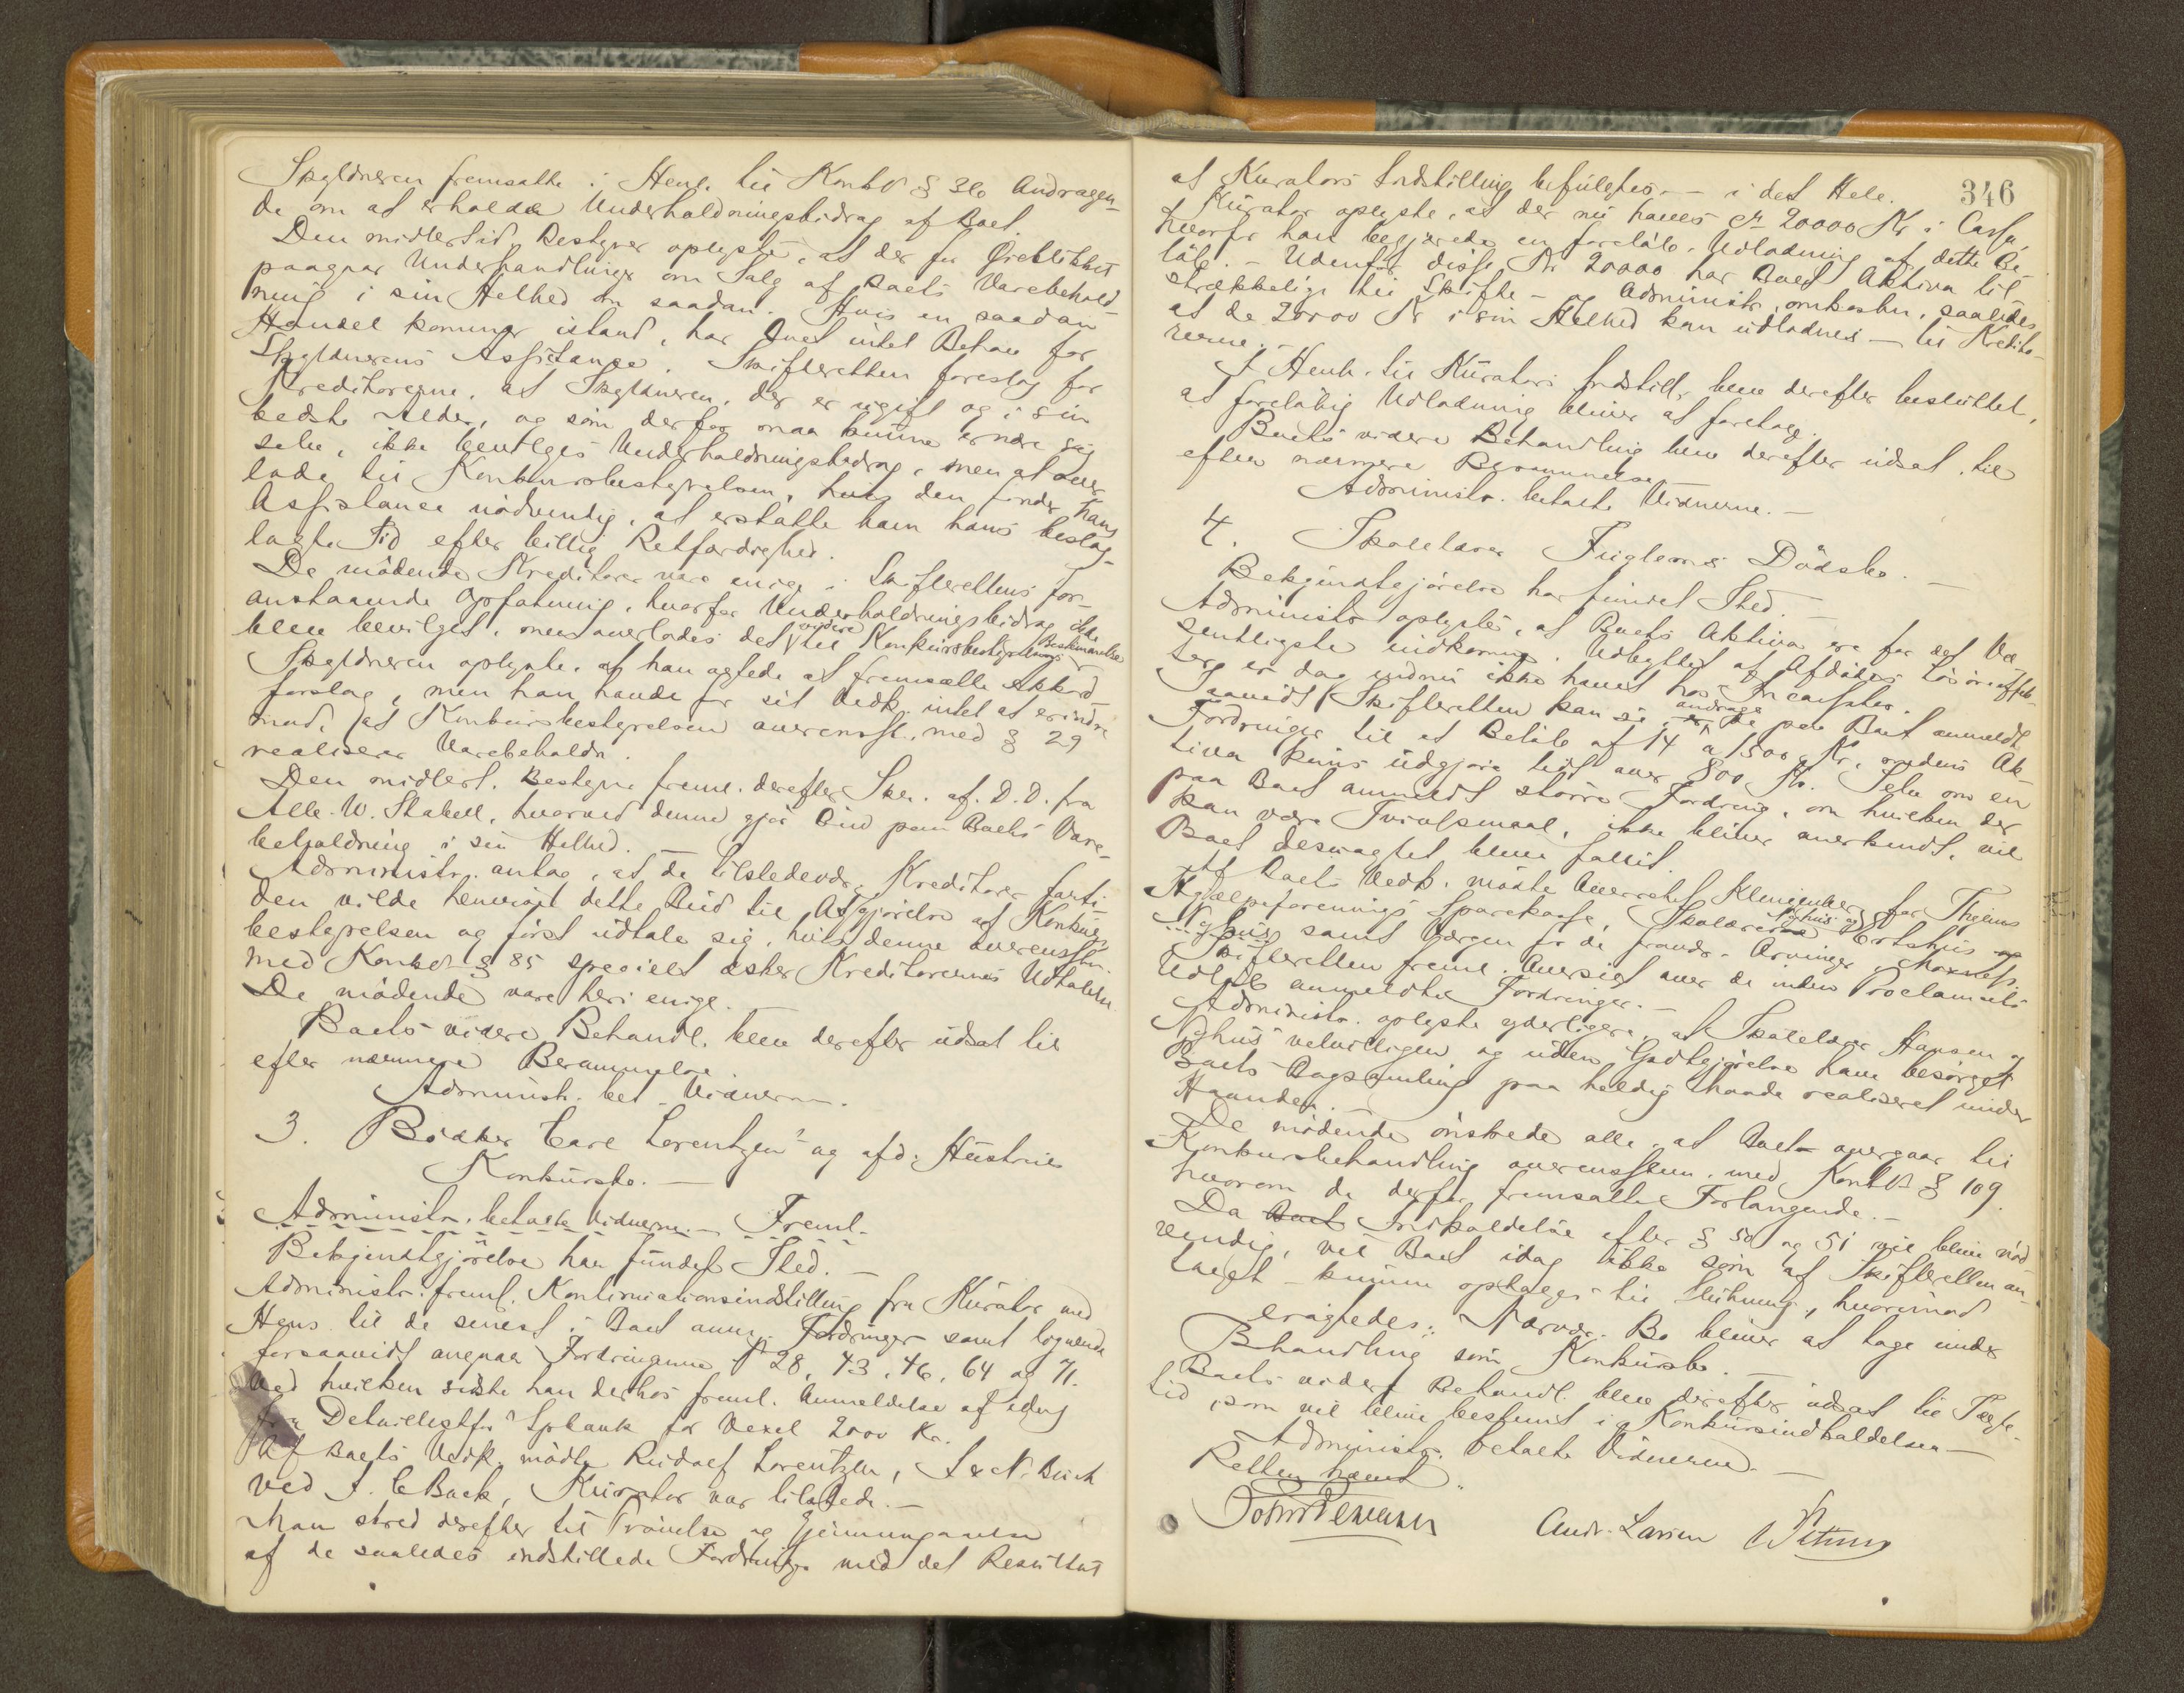 Skyldneren fremsatte i Henh. til Konkl § 36 Andragen-
de om at erholde Underholdningsbidrag af Boet.
Den midlertid. Bestyrer oplyste, at der for Øieblikket
paagaar Underhandlinger om Salg af Boets Varebehold-
ning i sin Helhed en saadan. Hvis en saadan
Handel kommer istand, har Boet intet Behov for
Skyldnerens Assistance. Skifteretten foreslog for
Kreditorerne, at Skyldneren, der er ugift og i sin
bedste Alder, og som derfor maa kunne ernære sig
selv, ikke bevilges Underholdningsbidrag, men at over
lade til Konkursbestyrelsen, hvis den finder hans
Assistance nødvendig, at erstatte ham hans beslag-
lagte Tid efter billig Retfærdighed.
De mødende Kreditorer vare enige i Skifterettens for-
anstaaende Opfatning, hvorfor Underholdningsbidrag ikke
blev bevilget, men overlodes det til Konkursbestyrelsens videre Bestemmelse
Skyldneren oplyste, at han agtede at fremsætte Akkord-
forslag, men han havde for sit Vedk. intet at erindre
mod, at Konkursbestyrelsen overensst. med § 29
realiserer Varebeholdn.
Den midlert. Bestyrer freml. derefter Skr. af D.D. fra
Alb. W. Stabell, hvorved denne gjør Bud paa Boets Vare-
beholdning i sin Helhed.
Administr. antog, at de tilstedevær. Kreditorer forti-
den vilde henvist dette Bud til Afgjørelse af Konkurs-
bestyrelsen og først udtale sig, hvis denne overensstm.
med Konkl § 85 specielt æsker Kreditorernes Udtalelse
De mødende vare heri enige.
Boets videre Behandl. blev derefter udsat til
efter nærmere Berammelse
Administr. bet. Vidnerne.
3. Bødker Carl Lorentzen og afd. Hustrues
Konkursbo.
Administr. betalte Vidnerne. Freml.
Bekjendtgjørelse har fundet Sted.
Administr. freml. Kontinuationsindstilling fra Kurator med
Hens. til de senest i Boet anm. Fordringer samt lignende
forsaavidt angaar Fordringerne 28, 43, 46, 64 og 71.
Ved hvilken sidste han derhos freml. Anmeldelse af idag
fra Detaillistfor. Spbank for Vexel 2000 Kr.
Af Boets Vedk. mødte Rudolf Lorentzen, I & N. Buck
ved I. C Buck, Kurator var tilstede.
Man skred derefter til Prøvelse og Gjennemgaaelse
af de saaledes indstillede Fordringer med det Resultat
346
at Kurators Indstilling befulgtes i det Hele.
Kurator oplyste, at der nu haves 20000 Kr i Cassa,
hvorfor han begjærede en foreløb. Udlodning af dette Be-
løb. Udenfor disse Kr 20000 har Boet Aktiva til-
strækkelige til Skifte- Administr. omkostn., saaledes
at de 20000 Kr i sin Helhed kan udlodnes til Kredito-
rerne.
I Henh. til Kurators Indstill. blev derefter besluttet,
at foreløbig Udlodning bliver at foretage.
Boets videre Behandling blev derefter udsat til
efter nærmere Berammelse
Administr. betalte Vidnerne.
4. Skolelærer Fuglems Dødsbo.
Bekjendtgjørelse har fundet Sted.
Administr. oplyste, at Boets Aktiva ere for det Væ-
sentligste indkomne. Udbyttet af Afdødes Løsøreeffek-
ter er dog endnu ikke hævet hos Incassator.
Saavidt Skifteretten kan se andrage de paa Boet anmeldte
Fordringer til et Beløb af 14 a 1500 Kr, medens Ak-
tiva kuns udgjøre lidt over 800 Kr. Selv om en
paa Boet anmeldt større Fordring, om hvilken der
kan være Tvivlsmaal, ikke bliver anerkjendt, vil
Boet desuagtet blive fallit.
Af Boets Vedk. mødte Overretss Klingenberg for Thjems
Hjælpeforenings Sparekasse, Skolærer Nyhus og Ertshus og
Nyhus samt Værgen for de fravær. Arvinger Moxness.
Skifteretten freml. Oversigt over de inden Proclamaets
Udløb anmeldte Fordringer.
Administr. oplyste yderligere, at Skolelærer Hansen og
Nyhus velvilligen og uden Godtgjørelse have besørget
Boets Bogsamling paa heldig Maade realiseret under
Haanden.
De mødende ønskede alle, at Boet overgaar til
Konkursbehandling overensstem. med Konkl § 109
hvorom de derfor fremsatte Forlangende.
Da Boet Indkaldelse efter § 50 og 51 vil blive nød-
vendig, vil Boet idag ikke som af Skifteretten an-
taget kunne optages til Slutning, hvorimod
eragtedes: Nærvær. Bo bliver at tage under
Behandling som Konkursbo.
Boets videre Behandl. blev derefter udsat til Tægte-
tid, som vil blive bestemt i Konkursindkaldelsen
Administr. betalte Vidnerne.
Retten hævet.
Andr. Larsen